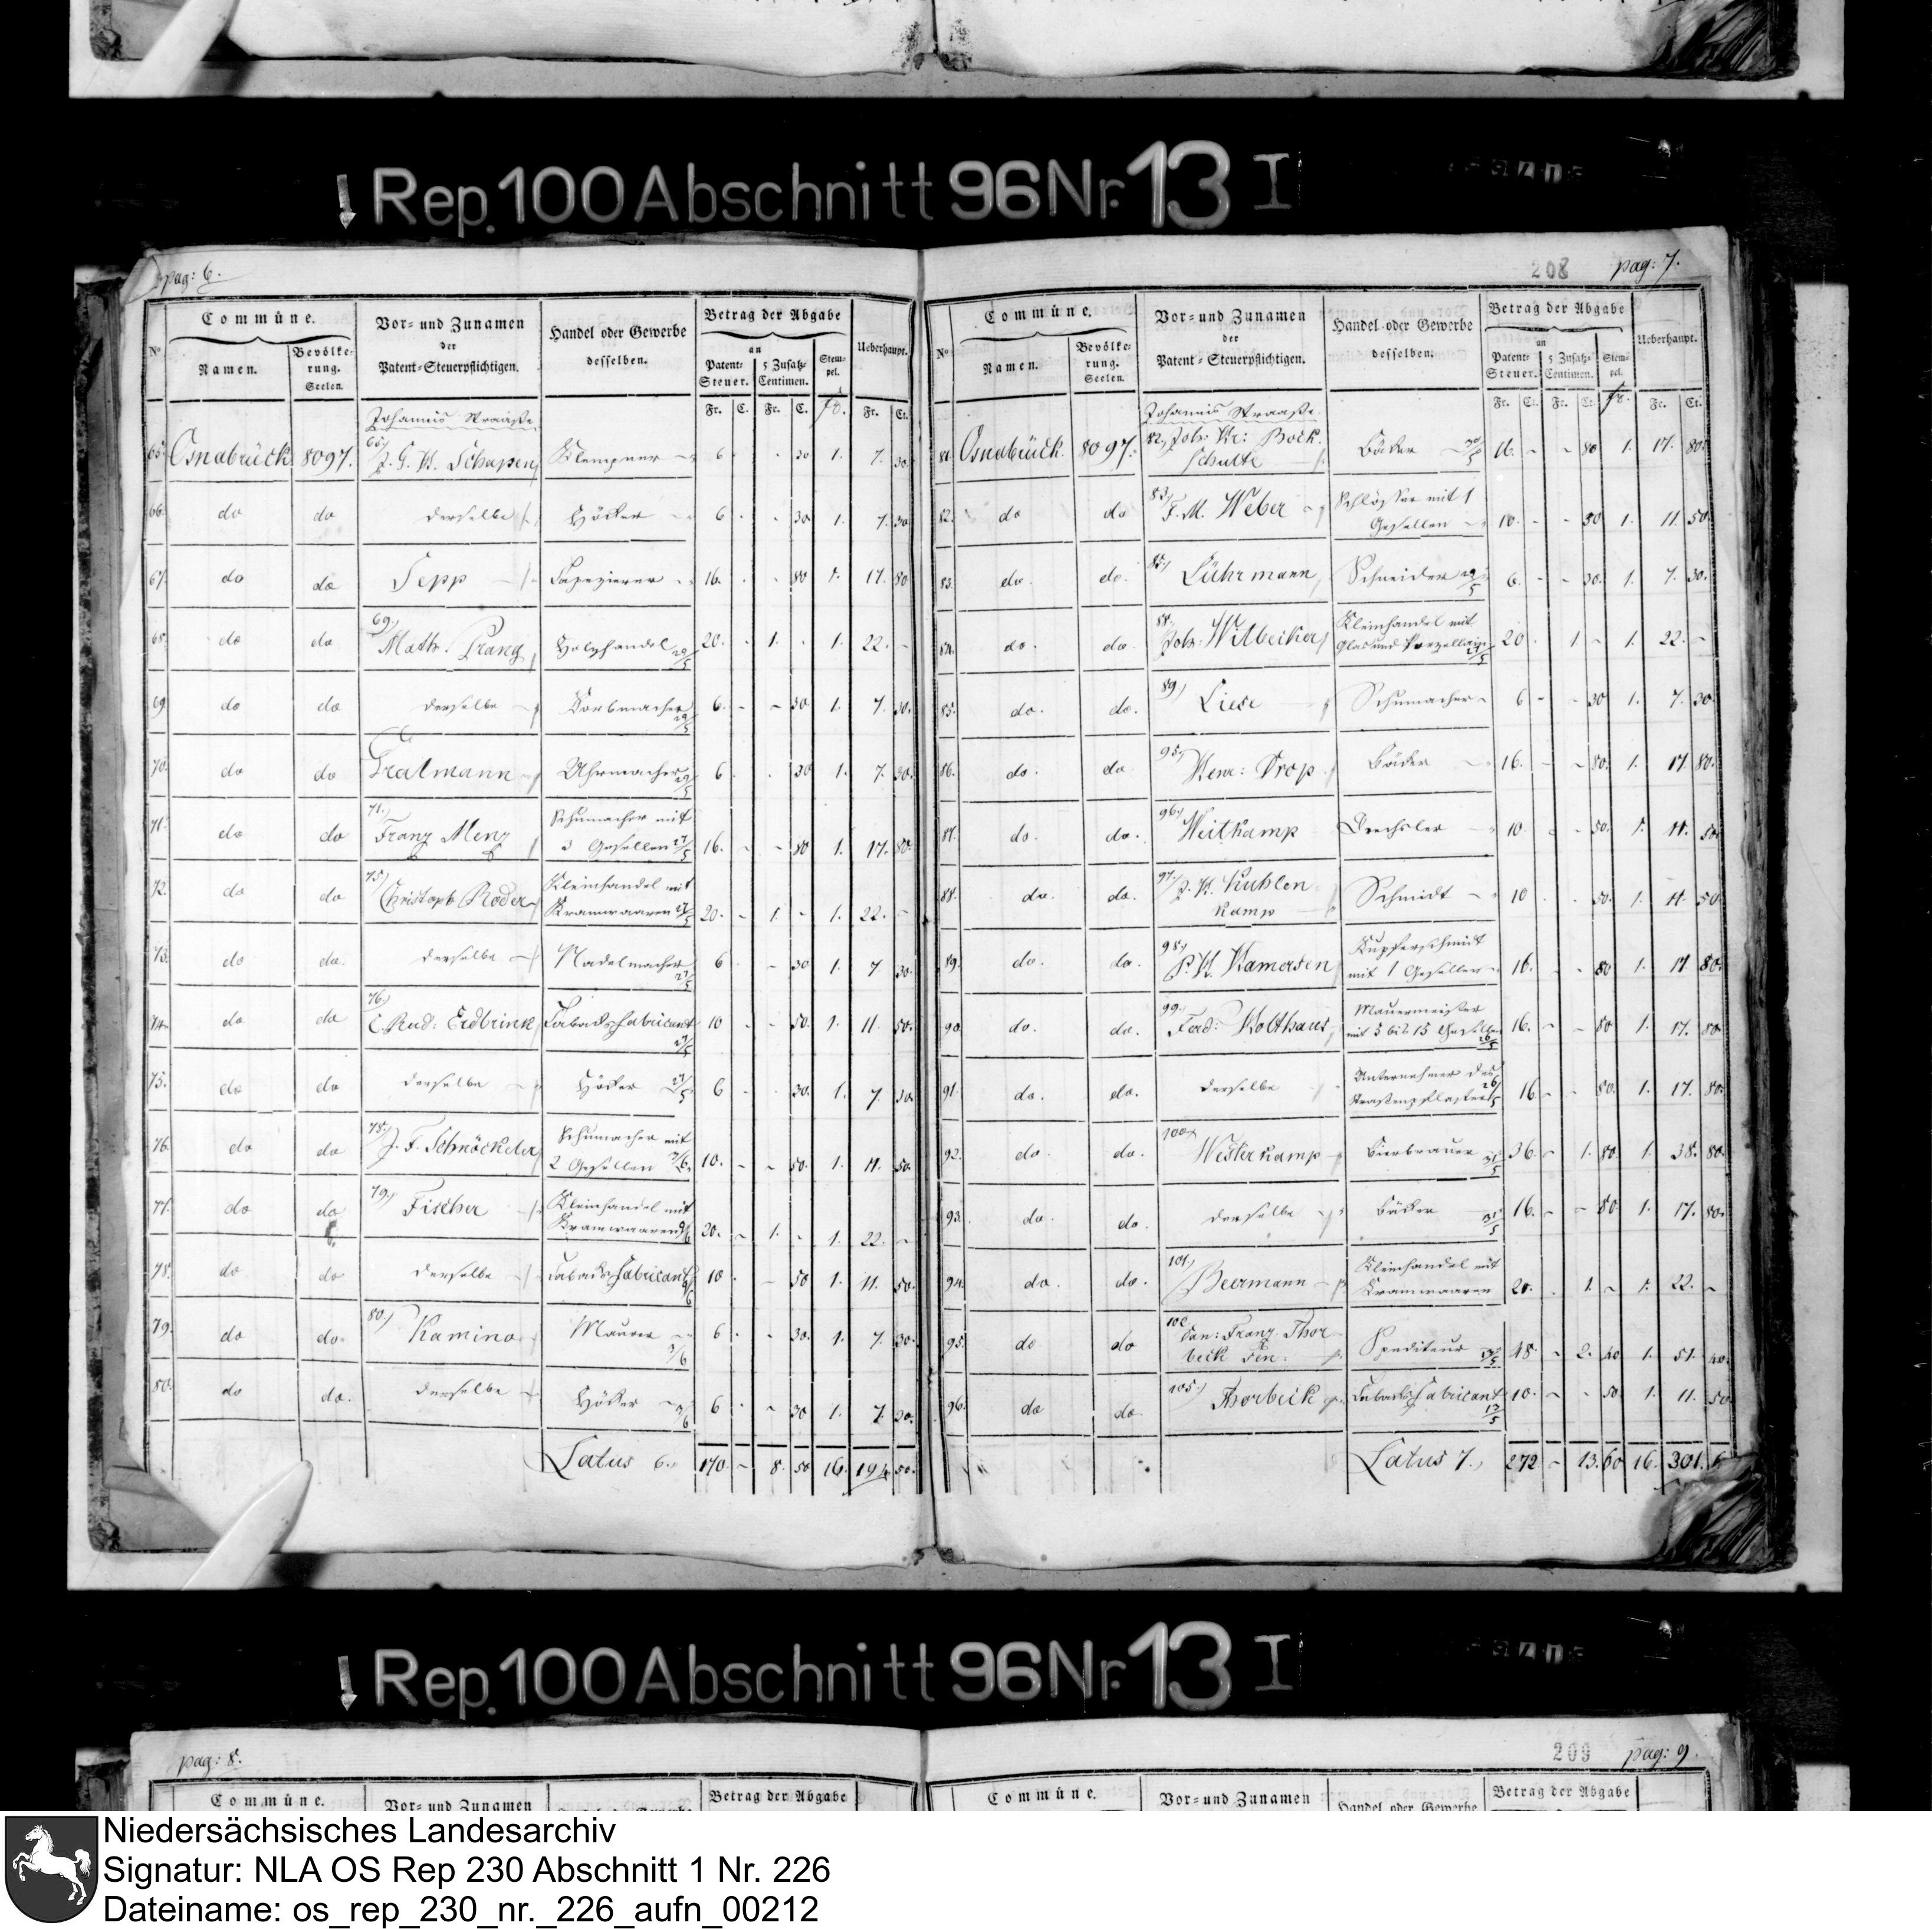 Rep. 100 Abschnitt 96 Nr. 13 I
pag: 6.
Commüne.
Vor= und Zunamen der Patent=Steuerpflichtigen.
Handel oder Gewerbe desselben.
Betrag der Abgabe
an
No
Namen.
Bevölkerung. Seelen.
Patent=Steuer.
5 Zusatz=Centimen.
Stempel.
Ueberhaupt.
Fr. C. Fr. C. fr. Fr. Ct.
Johannis Straaße.
65. Osnabrück. 8097. J. G. H. Schapen Klempner 6 - - 30 1. 7. 30.
66. do do derselbe Höcker 6 - - 30 1. 7. 30
67. do do Sepp Tapezierer 16. - - 80 1. 17. 80
68. do do 69.) Math. Prang Holzhandel 29/5 20. - 1. - 1. 22. -
69 do do derselbe Korbmacher 29/5 6. - - 30. 1. 7. 30.
70. do do Tratmann Uhrmacher 29/5 6 - - 30 1. 7. 30.
71. do do 71.) Franz Menz Schumacher mit
3 Gesellen 27/5 16. - - 80 1. 17. 80.
72. do do 75) Christoph Roder Kleinhandel mit
Kramwaaren 27/5 20. - 1. - 1. 22. -
73. do do. derselbe Nadelmacher 27/5 6 - - 30 1. 7 30.
74. do do 76.) C. Rud: Erdbrink Tabacksfabricant 27/5 10 - - 50. 1. 11. 50.
75. do do derselbe Höcker 27/5 6 - - 30. 1. 7. 30.
76. do do 78.) J. F. Schnöckeler Schumacher mit
2 Gesellen 10. - - 50. 1. 11. 50.
77. do do 79) Fischer Kleinhandel mit
Kramwaaren 20. - 1. - 1. 22. -
78. do do derselbe Tabacksfabricant 10 - - 50 1. 11. 50.
79. do do. 80.) Kamino Maurer 6 - - 30. 1. 7. 30.
80. do do. derselbe Höcker 6 - - 30 1. 7. 30.
Latus 6. 170. - 8. 50 16. 194. 50.
208 pag: 7.
Commüne.
Vor= und Zunamen der Patent=Steuerpflichtigen.
Handel oder Gewerbe desselben.
Betrag der Abgabe
an
No
Namen.
Bevölkerung. Seelen.
Patent=Steuer.
5 Zusatz=Centimen.
Stempel.
Ueberhaupt.
Fr. Ct. Fr. Ct. fr. Fr. Ct.
Johannis Straaße.
81. Osnabrück. 8097. 82.) Joh: Hr: Bock
Schulte Bäcker 16. - - 80 1. 17. 80.
82. do do 83) F. M. Weber Schlösser mit 1
Gesellen 10. - - 50 1. 11. 50.
83. do. do. Lührmann Schneider 29/5 6. - - 30. 1. 7. 30.
84. do. do. 88. Joh: Witbecker Kleinhandel mit
Glas und Porzellain 20 - 1 - 1. 22. -
85. do. do. 89) Liese Schumacher 6 - - 30 1. 7. 30.
86. do. do 95) Henr: Drop Bäcker 16. - - 80. 1. 17 80.
87. do. do. 96) Weitkamp Drechsler 10 - - 50. 1. 11. 50
88. do. do. 97.) J. H. Kuhlen
kamp Schmidt 10 - - 50. 1. 11. 50
89. do. do. 98) P. H. Kamersen Kupferschmidt
mit 1 Gesellen 16. - - 80 1. 17 80.
90. do. do. 99. Ferd: Kolthaus Mauermeister
mit 5 bis 15 Gesellen 26/5 16. - - 80 1. 17. 80
91. do. do. derselbe Unternehmer des
Straßenpflasters 26/5 16 - - 80. 1. 17. 80.
92. do. do. 100 Westerkamp Bierbrauer 31/5 36. - 1. 80. 1. 38. 80.
93. do. do. derselbe Bäcker 31/5 16. - - 80. 1. 17. 80.
94. do. do. 101.) Beermann Kleinhandel mit
Kramwaaren 20. - 1. - 1. 22. -
95. do do 102 Dan: Franz Thor
beck sen: Spediteur 48. - 2. 40 1. 51. 40.
96. do do. 105.) Thorbeck Tabacksfabricant 13/5 10. - - 50 1. 11. 50
Latus 7. 272 - 13. 60 16. 301. 6
Rep. 100 Abschnitt 96 Nr. 13 I
pag: 8.
Commüne.
Vor= und Zunamen
Betrag der Abgabe
209 pag: 9.
Commüne.
Vor= und Zunamen
Handel oder Gewerbe
Betrag der Abgabe
Niedersächsisches Landesarchiv
Signatur: NLA OS Rep 230 Abschnitt 1 Nr. 226
Dateiname: os_rep_230_nr._226_aufn_00212